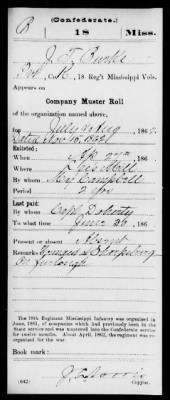 (Confederate.)
B 18 Miss.
J. T. Burks
Pvt, Co. K, 18 Reg't Mississippi Vols.
Appears on
Company Muster Roll
of the organization named above,
for July & Aug, 186
Dated Nov 16, 1862
Enlisted:
When
Where
By whom Maj Campbell
Period 2 yrs
Last paid:
By whom Capt Doherty
To what time June 30, 186
Present or absent Absent
Remarks: Wounded at Sharpsburg
on furlough
The 18th Regiment Mississippi Infantry was organized in
June, 1861, of companies which had previously been in the
State service and was mustered into the Confederate service
for twelve months. About April, 1862, the regiment was re-
organized for the war.
Book mark:
(642)
Copyist.